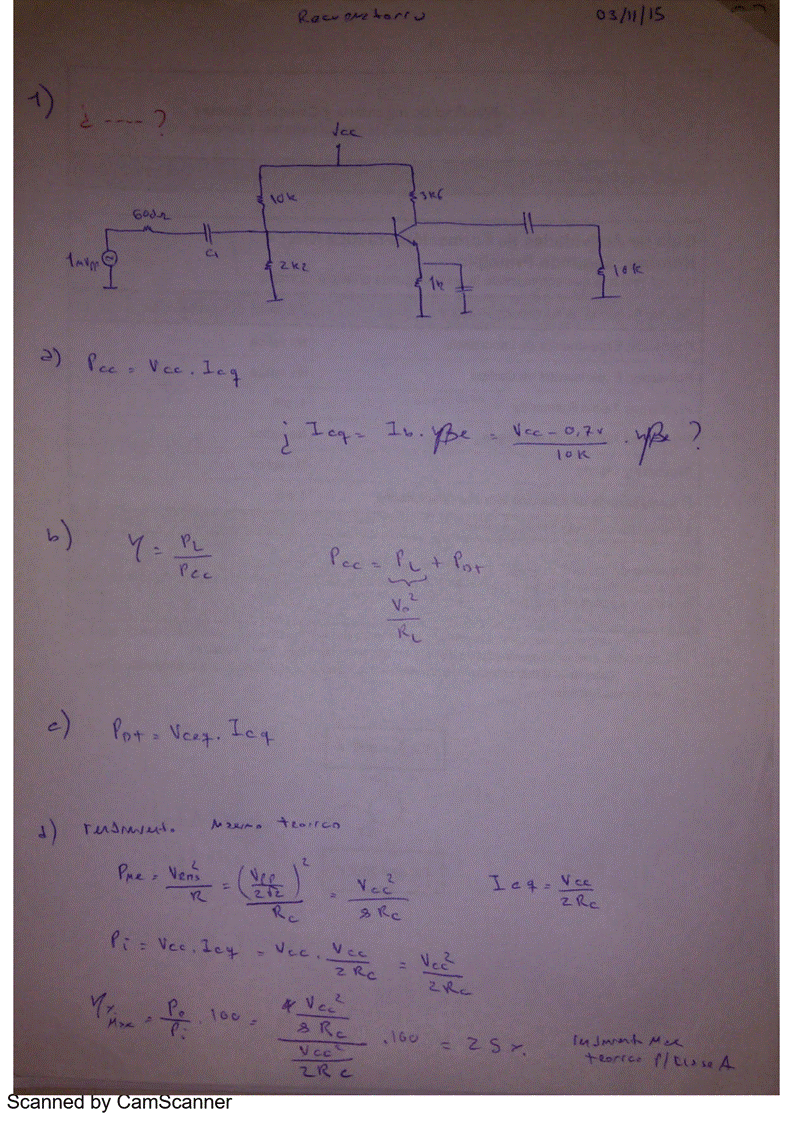 Recuperatorio 03/11/15
1) ¿ ---- ?
Vcc
10K 3K6
600Ω
1mVpp C1 2K2 1K 10K
a) Pcc = Vcc . Icq
¿ Icq = Ib . = Vcc - 0,7v / 10K . ?
b) η = PL / Pcc Pcc = PL + PDt
Vo² / RL
c) PDt = Vceq . Icq
d) rendimiento Maximo teorico
PMax = Vrms² / R = (Vpp / 2√2)² / Rc = Vcc² / 8Rc Icq = Vcc / 2Rc
Pi = Vcc . Icq = Vcc . Vcc / 2Rc = Vcc² / 2Rc
η% Max = Po / Pi . 100 = Vcc² / 8Rc / Vcc² / 2Rc . 100 = 25 %. rendimiento Max
teorico P/ Clase A
Scanned by CamScanner